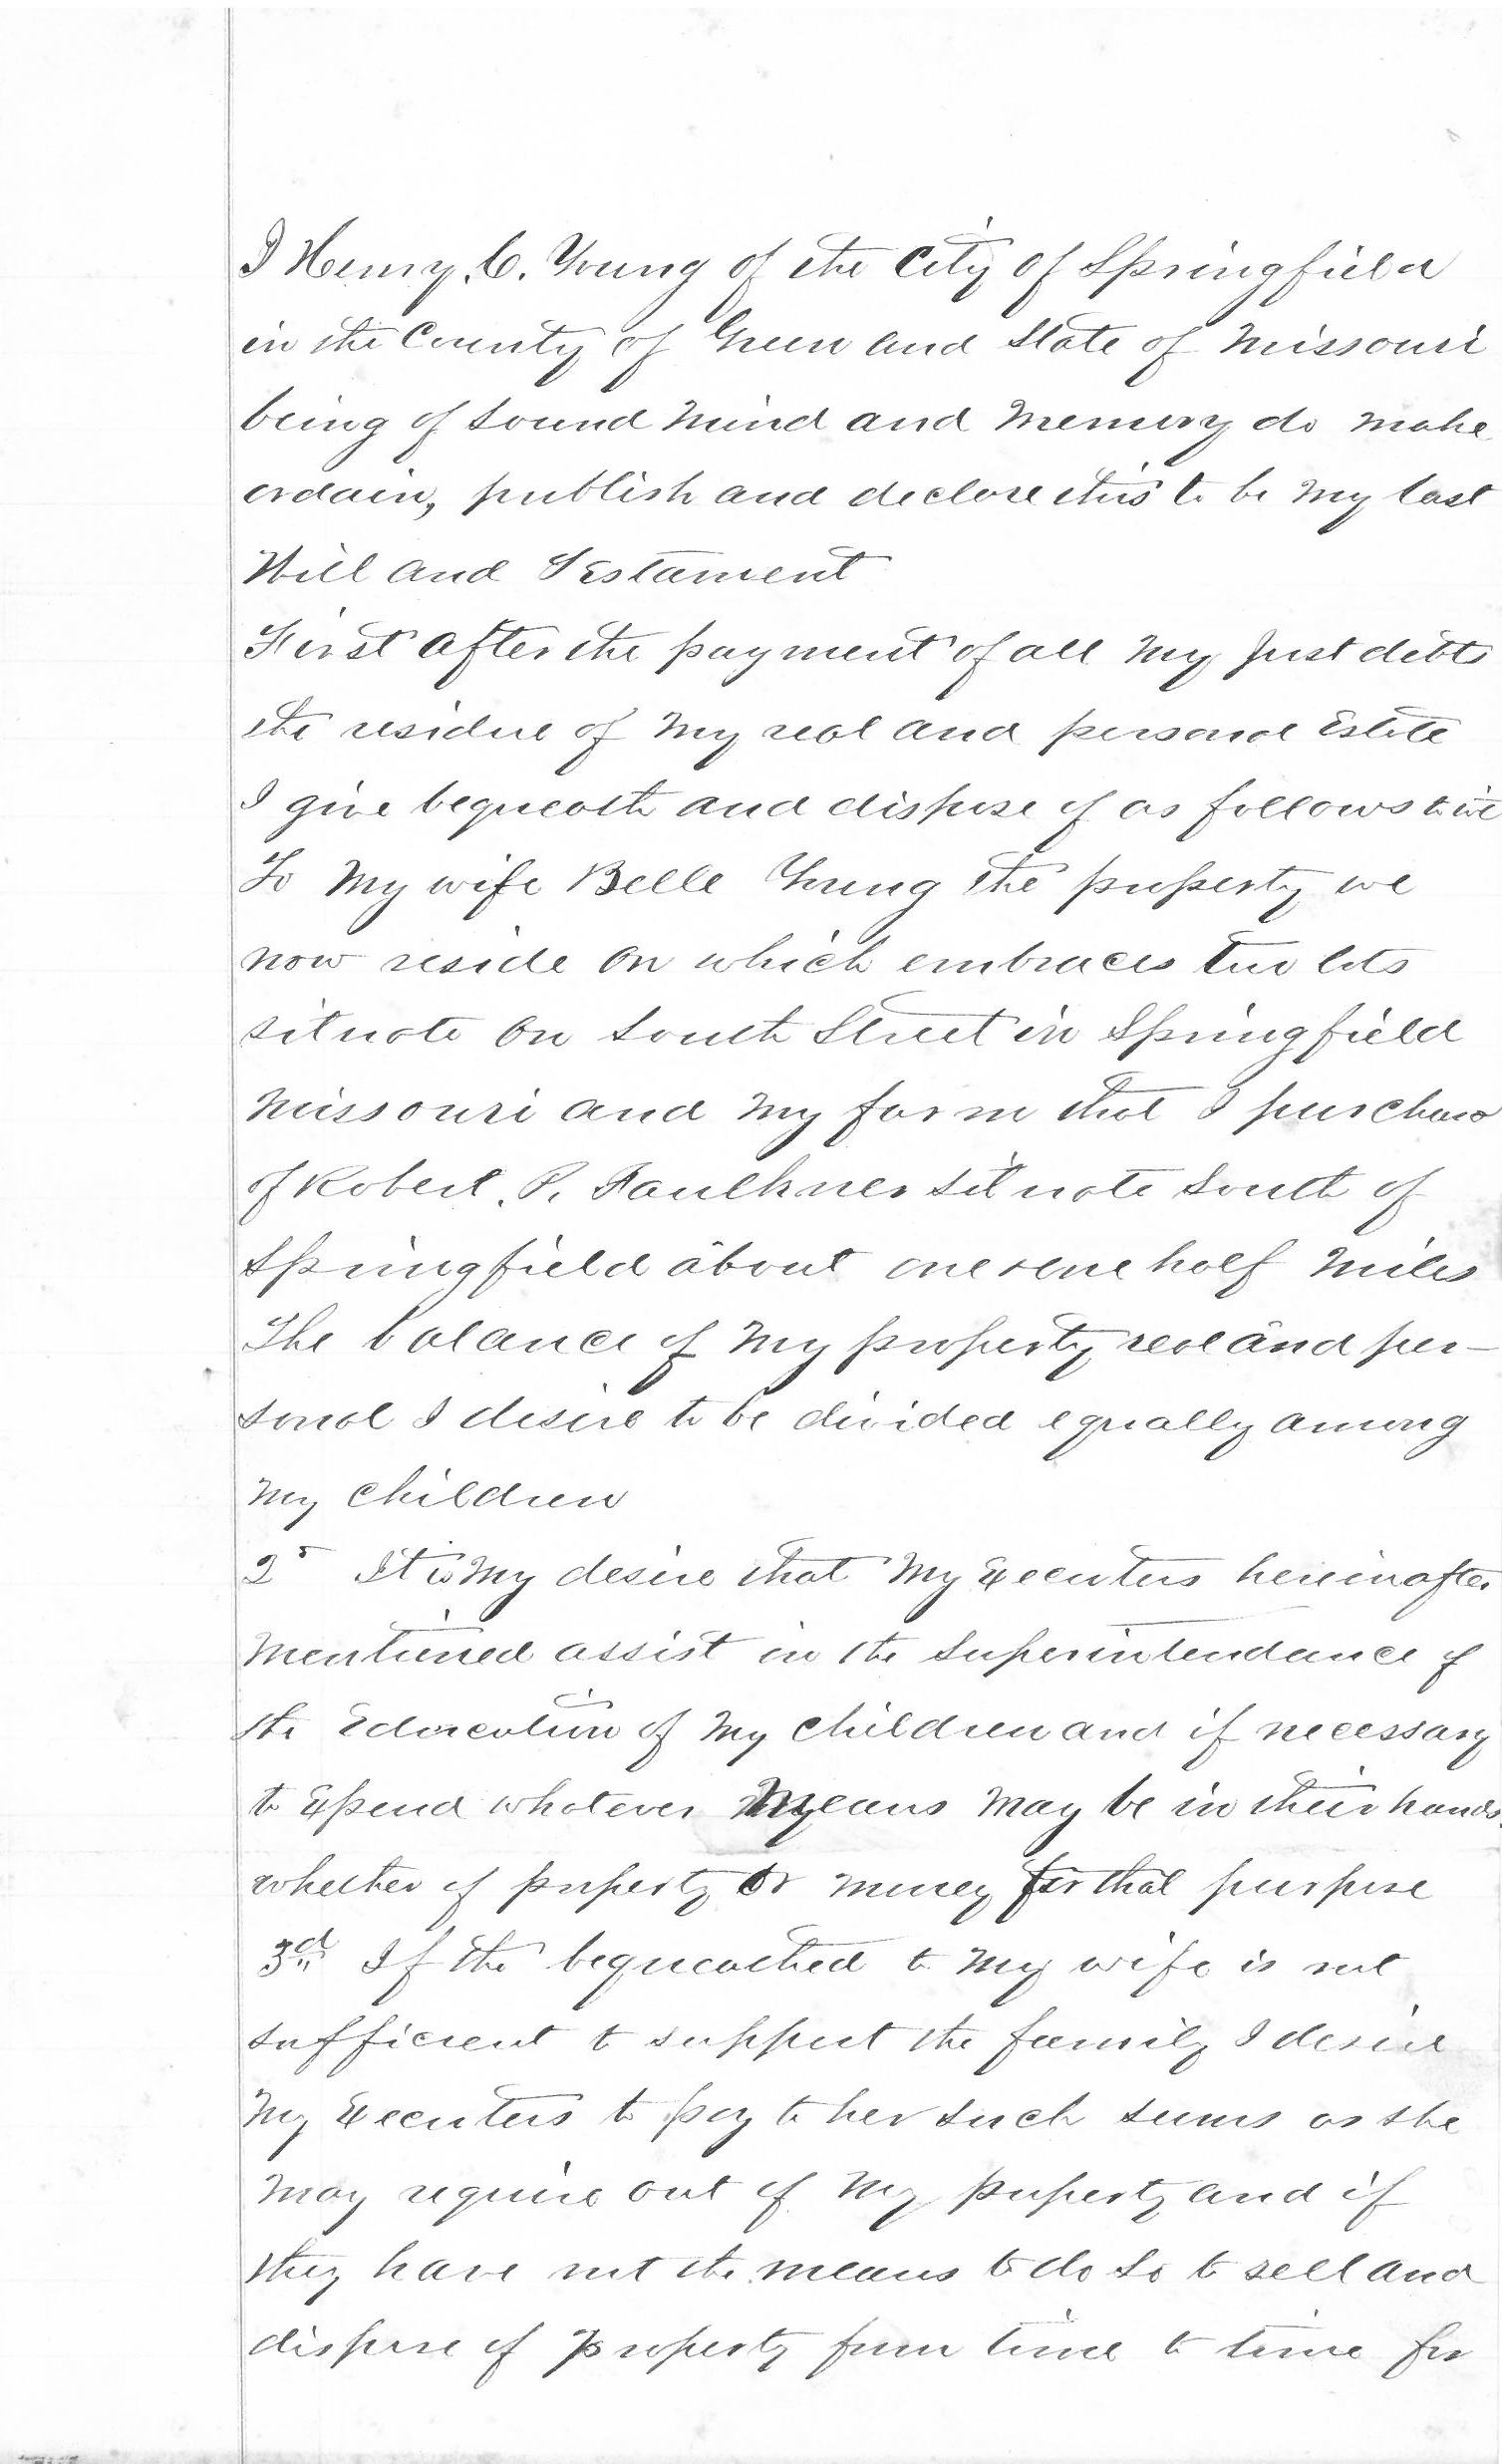 I Henry, C. Young of the City of Springfield
in the County of Green and State of Missouri
being of sound mind and memory do make
ordain, publish and declare this to be my last
Will and Testament
First after the payment of all my Just debts
the residue of my real and personal Estate
I give bequeath and dispose of as follows to wit
To my wife Belle Young the property we
now reside on which embraces two lots
situate on South Street in Springfield
Missouri and my farm that I purchase
of Robert. P. Faulkner situate South of
Springfield about one & one half miles
The balance of my property real and per-
sonal I desire to be divided equally among
my children
2d It is my desire that my Executors hereinafter
mentioned assist in the Superintendance of
the Education of my children and if necessary
to Expend whatever means may be in their hands.
whether of property or money for that purpose
3rd If the bequeathed to my wife is not
sufficient to support the family I desire
my Executors to pay to her such sums as she
may require out of my property and if
they have not the means to do so to sell and
dispose of property from time to time for